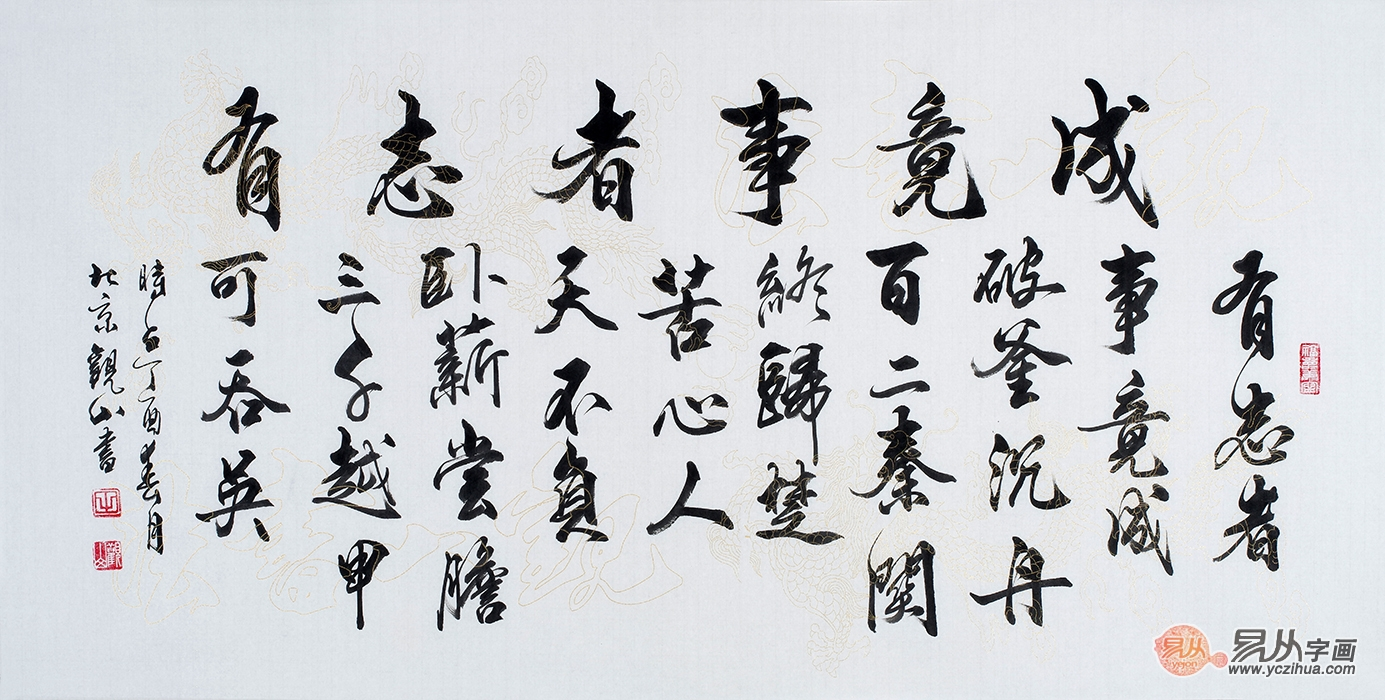 有志者事竟成
有志者
事竟成
破釜沉舟
百二秦關
終歸楚
苦心人
天不負
卧薪尝膽
三千越甲
可吞吴
時在丁酉春月
北京觀山書
觀山
易从
易从字画
www.yczihua.com